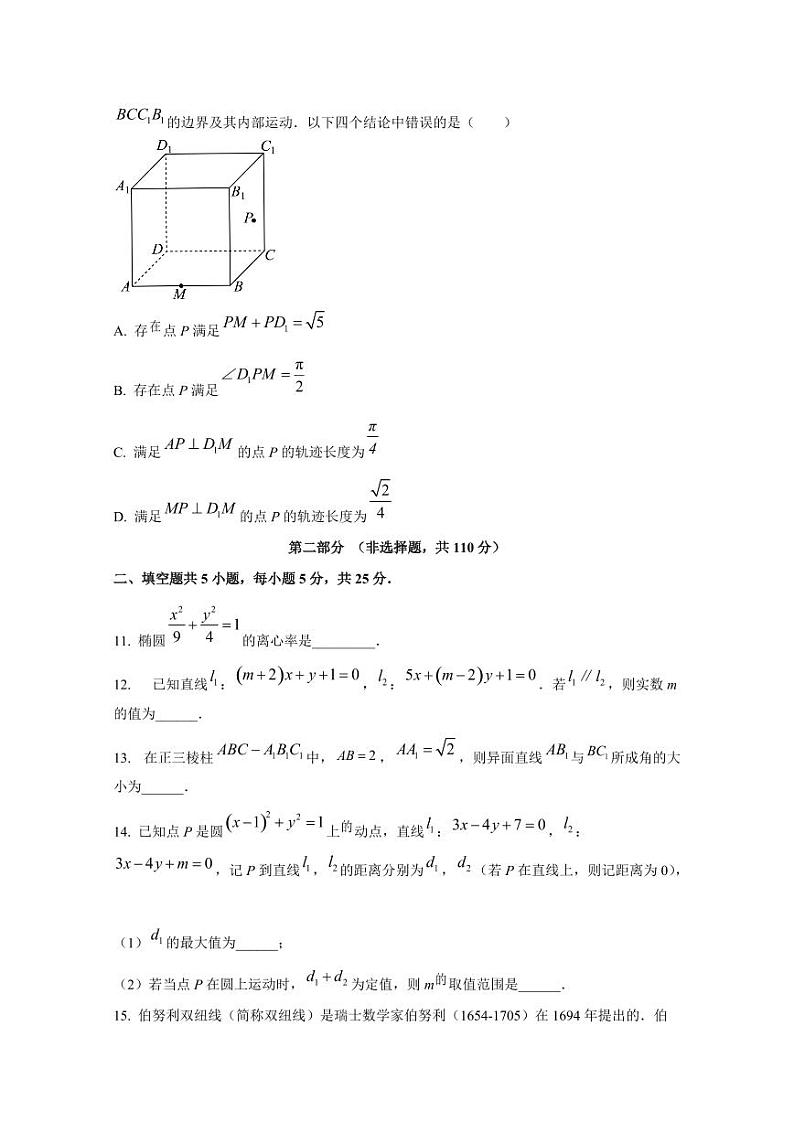 BCC₁B₁的边界及其内部运动．以下四个结论中错误的是（　　）
D₁
C₁
A₁
B₁
P
D
C
A
M
B
A. 存在点 P 满足 PM + PD₁ = √5
B. 存在点 P 满足 ∠D₁PM = π/2
C. 满足 AP ⊥ D₁M 的点 P 的轨迹长度为 π/4
D. 满足 MP ⊥ D₁M 的点 P 的轨迹长度为 √2/4
第二部分 （非选择题，共 110 分）
二、填空题共 5 小题，每小题 5 分，共 25 分．
11. 椭圆 x²/9 + y²/4 = 1 的离心率是_________．
12. 已知直线 l₁：(m+2)x + y + 1 = 0，l₂：5x + (m−2)y + 1 = 0．若 l₁ // l₂，则实数 m
的值为______．
13. 在正三棱柱 ABC − A₁B₁C₁ 中，AB = 2，AA₁ = √2，则异面直线 AB₁ 与 BC₁ 所成角的大
小为______．
14. 已知点 P 是圆 (x−1)² + y² = 1 上的动点，直线 l₁：3x − 4y + 7 = 0，l₂：
3x − 4y + m = 0，记 P 到直线 l₁，l₂ 的距离分别为 d₁，d₂（若 P 在直线上，则记距离为 0），
（1）d₁ 的最大值为______；
（2）若当点 P 在圆上运动时，d₁ + d₂ 为定值，则 m 的取值范围是______．
15. 伯努利双纽线（简称双纽线）是瑞士数学家伯努利（1654-1705）在 1694 年提出的．伯